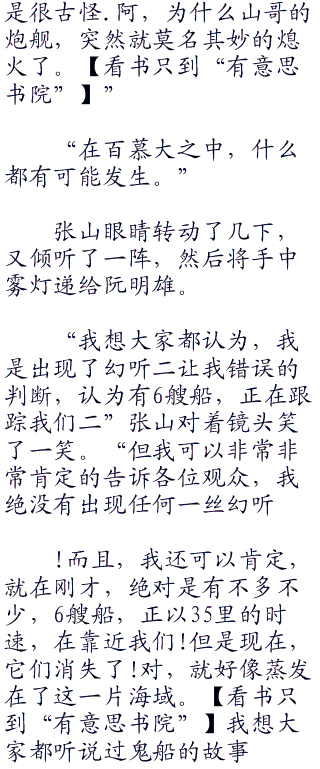 是很古怪.阿，为什么山哥的
炮舰，突然就莫名其妙的熄
火了。【看书只到“有意思
书院”】”
“在百慕大之中，什么
都有可能发生。”
张山眼晴转动了几下，
又倾听了一阵，然后将手中
雾灯递给阮明雄。
“我想大家都认为，我
是出现了幻听二让我错误的
判断，认为有6艘船，正在跟
踪我们二”张山对着镜头笑
了一笑。“但我可以非常非
常肯定的告诉各位观众，我
绝没有出现任何一丝幻听
!而且，我还可以肯定，
就在刚才，绝对是有不多不
少，6艘船，正以35里的时
速，在靠近我们!但是现在，
它们消失了!对，就好像蒸发
在了这一片海域。【看书只
到“有意思书院”】我想大
家都听说过鬼船的故事